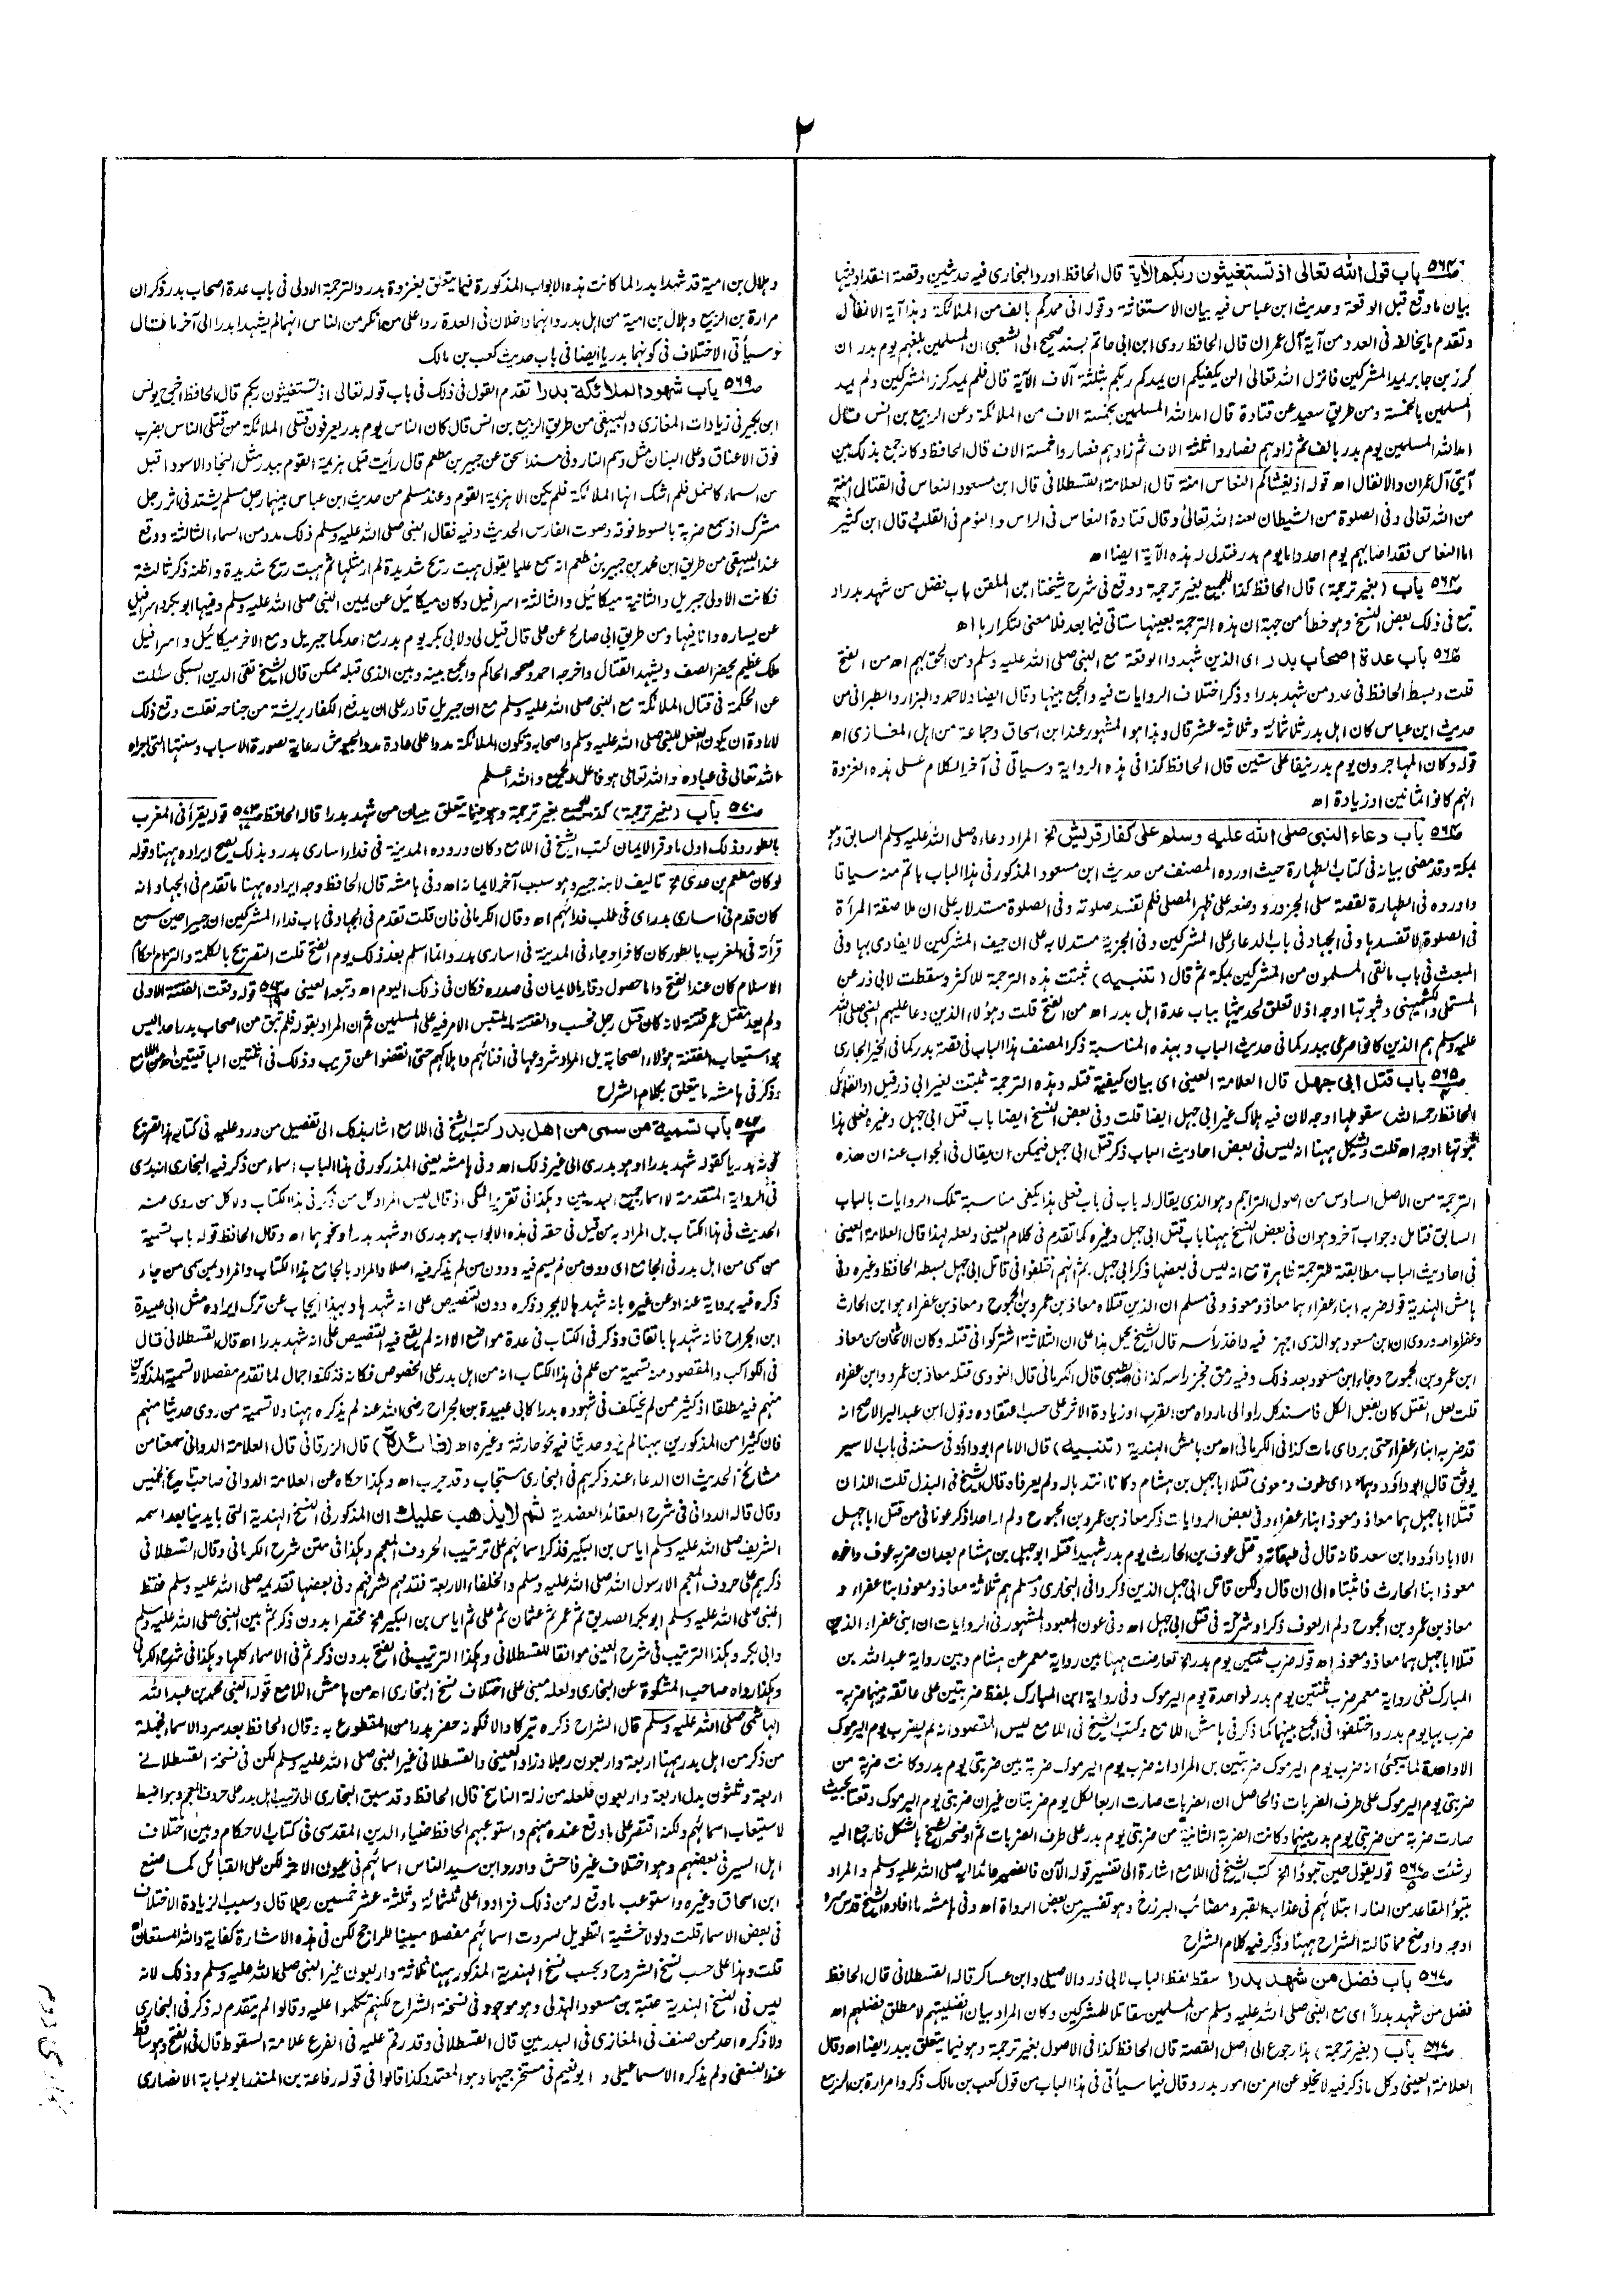 ٢
ص٥٦٤ باب قول الله تعالى اذ تستغيثون ربكم الآية قال الحافظ اورد البخارى فيه حديثين وقصة المقداد فيها
بيان ما وقع قبل الوقعة وحديث ابن عباس فيه بيان الاستغاثة وقوله انى ممدكم بالف من الملائكة وهذا آية الانفال
وتقدم ما يخالفه فى العدد من آية آل عمران قال الحافظ روى ابن ابى حاتم بسند صحيح الى الشعبى ان المسلمين بلغهم يوم بدر ان
كرز بن جابر يمد المشركين فانزل الله تعالى الن يكفيكم ان يمدكم ربكم بثلثة آلاف الآية قال فلم يمد كرز المشركين ولم يمد
المسلمين بالخمسة ومن طريق سعيد عن قتادة قال امد الله المسلمين بخمسة الاف من الملائكة وعن الربيع بن انس قال
امد الله المسلمين يوم بدر بالف ثم زادهم فصاروا ثلثة الاف ثم زادهم فصاروا خمسة الاف قال الحافظ وكانه جمع بذلك بين
آيتى آل عمران والانفال اه قوله اذ يغشاكم النعاس امنة قال العلامة القسطلانى قال ابن مسعود النعاس فى القتال امنة
من الله تعالى وفى الصلوة من الشيطان لعنه الله تعالى وقال قتادة النعاس فى الراس والنوم فى القلب قال ابن كثير
اما النعاس فقد اصابهم يوم احد واما يوم بدر فتدل له هذه الآية ايضا اه
ص٥٦٤ باب (بغير ترجمة) قال الحافظ كذا للجميع بغير ترجمة ووقع فى شرح شيخنا ابن الملقن باب فضل من شهد بدرا و
تبع فى ذلك بعض النسخ وهو خطأ من جهة ان هذه الترجمة بعينها ستأتى فيما بعد فلا معنى لتكرارها اه
ص٥٦٤ باب عدة اصحاب بدر اى الذين شهدوا الوقعة مع النبى صلى الله عليه وسلم ومن الحق بهم اه من الفتح
قلت وبسط الحافظ فى عدد من شهد بدرا وذكر اختلاف الروايات فيه والجمع بينها وقال ايضا ولاحمد والبزار والطبرانى من
حديث ابن عباس كان اهل بدر ثلاثمائة وثلاثة عشر قال وهذا هو المشهور عند ابن اسحاق وجماعة من اهل المغازى اه
قوله وكان المهاجرون يوم بدر نيفا على ستين قال الحافظ كذا فى هذه الرواية وسيأتى فى آخر الكلام على هذه الغزوة
انهم كانوا ثمانين او زيادة اه
ص٥٦٤ باب دعاء النبى صلى الله عليه وسلم على كفار قريش الخ المراد دعاءه صلى الله عليه وسلم السابق وهو
بمكة وقد مضى بيانه فى كتاب الطهارة حيث اورده المصنف من حديث ابن مسعود المذكور فى هذا الباب باتم منه سياقا
واورده فى الطهارة لقصة سلى الجزور ووضعه على ظهر المصلى فلم تفسد صلوته وفى الصلوة مستدلا به على ان ملاصقة المرأة
فى الصلوة لا تفسدها وفى الجهاد فى باب الدعاء على المشركين وفى الجزية مستدلا به على ان جيف المشركين لا يفادى بها وفى
المبعث فى باب ما لقى المسلمون من المشركين بمكة ثم قال (تنبيه) ثبتت هذه الترجمة للاكثر وسقطت لابى ذر عن
المستملى والكشميهنى وثبوتها اوجه اذ لا تعلق لحديثها بباب عدة اهل بدر اه من الفتح قلت وهؤلاء الذين دعا عليهم النبى صلى الله
عليه وسلم هم الذين كانوا صرعى ببدر كما فى حديث الباب وبهذه المناسبة ذكر المصنف هذا الباب فى قصة بدر كما فى الخير الجارى
ص٥٦٥ باب قتل ابى جهل قال العلامة العينى اى بيان كيفية قتله وهذه الترجمة ثبتت لغير ابى ذر قيل (والقائل
الحافظ رحمه الله) سقوطها اوجه لان فيه هلاك غير ابى جهل ايضا قلت وفى بعض النسخ ايضا باب قتل ابى جهل وغيره فعلى هذا
ثبوتها اوجه اه قلت ويشكل ههنا انه ليس فى بعض احاديث الباب ذكر قتل ابى جهل فيمكن ان يقال فى الجواب عنه ان هذه
الترجمة من الاصل السادس من اصول التراجم وهو الذى يقال له باب فى باب فعلى هذا يكفى مناسبة تلك الروايات بالباب
السابق فتامل وجواب آخر وهو ان فى بعض النسخ ههنا باب قتل ابى جهل وغيره كما تقدم فى كلام العينى ولعله لهذا قال العلامة العينى
فى احاديث الباب مطابقته للترجمة ظاهرة مع انه ليس فى بعضها ذكر ابى جهل ثم انهم اختلفوا فى قاتل ابى جهل بسطه الحافظ وغيره وفى
هامش الهندية قوله ضربه ابنا عفراء هما معاذ ومعوذ وفى مسلم ان الذين قتلاه معاذ بن عمرو بن الجموح ومعاذ بن عفراء هو ابن الحارث
وعفراء امه وروى ان ابن مسعود هو الذى اجهز فيه واخذ رأسه قال الشيخ يحمل هذا على ان الثلاثة اشتركوا فى قتله وكان الاثخان من معاذ
ابن عمرو بن الجموح وجاء ابن مسعود بعد ذلك وفيه رمق فجز راسه كذا فى الطيبى قال الكرمانى قال النووى قتله معاذ بن عمرو وابن عفراء
قلت لعل القتل كان بفعل الكل فاسند كل راو الى ما رواه من الضرب او زيادة الاثر على حسب اعتقاده وقول ابن عبد البر الاصح انه
قد ضربه ابنا عفراء حتى برد اى مات كذا فى الكرمانى اه من هامش الهندية (تنبيه) قال الامام ابو داؤد فى سننه فى باب الاسير
يوثق قال ابو داؤد وهما اى عوف ومعوذ قتلا ابا جهل بن هشام وكانا انتدبا له ولم يعرفاه وقال الشيخ فى البذل قلت اللذان
قتلا ابا جهل هما معاذ ومعوذ ابنا عفراء وفى بعض الروايات ذكر معاذ بن عمرو بن الجموح ولم ار احدا ذكر عوفا فى من قتل ابا جهل
الا ابا داؤد وابن سعد فانه قال فى طبقاته وقتل عوف بن الحارث يوم بدر شهيدا قتله ابو جهل بن هشام بعد ان ضربه عوف واخوه
معوذ ابنا الحارث فاثبتاه الى ان قال ولكن قاتل ابى جهل الذين ذكروا فى البخارى ومسلم هم ثلاثة معاذ ومعوذ ابنا عفراء و
معاذ بن عمرو بن الجموح ولم ار لعوف ذكرا وشركة فى قتل ابى جهل اه وفى عون المعبود المشهور فى الروايات ان ابنى عفراء الذين
قتلا ابا جهل هما معاذ ومعوذ اه قوله ضرب ثنتين يوم بدر الخ تعارضت ههنا بين رواية معمر عن هشام وبين رواية عبد الله بن
المبارك ففى رواية معمر ضرب ثنتين يوم بدر وواحدة يوم اليرموك وفى رواية ابن المبارك بلفظ ضربتين على عاتقه بينهما ضربة
ضرب بها يوم بدر واختلفوا فى الجمع بينهما كما ذكر فى هامش اللامع وكتب الشيخ فى اللامع ليس المقصود انه لم يضرب يوم اليرموك
الا واحدة لما سيجئ انه ضرب يوم اليرموك ضربتين بل المراد انه ضرب يوم اليرموك ضربة بين ضربتى يوم بدر وكانت ضربة من
ضربتى يوم اليرموك على طرف الضربات فالحاصل ان الضربات صارت اربعا لكل يوم ضربتان غير ان ضربتى يوم اليرموك وقعتا بحيث
صارت ضربة من ضربتى يوم بدر بينهما وكانت الضربة الثانية من ضربتى يوم بدر على طرف الضربات ثم اوضحه الشيخ بالشكل فارجع اليه
لو شئت ص٥٦٧ قوله يقول حين تبوؤا الخ كتب الشيخ فى اللامع اشارة الى تفسير قوله الآن فالضمير عائد اليه صلى الله عليه وسلم والمراد
بتبوؤ المقاعد من النار ابتلائهم فى عذاب القبر ومصائب البرزخ وهو تفسير من بعض الرواة اه وفى هامشه ما افاده الشيخ قدس سره
اوجه واوضح مما قالته الشراح ههنا وذكر فيه كلام الشراح
ص٥٦٧ باب فضل من شهد بدرا سقط لفظ الباب لابى ذر والاصيلى وابن عساكر قاله القسطلانى قال الحافظ
فضل من شهد بدرا اى مع النبى صلى الله عليه وسلم من المسلمين مقاتلا للمشركين وكان المراد بيان افضليتهم لا مطلق فضلهم اه
ص٥٦٧ باب (بغير ترجمة) هذا رجوع الى اصل القصة قال الحافظ كذا فى الاصول بغير ترجمة وهو فيما يتعلق ببدر ايضا اه وقال
العلامة العينى وكل ما ذكر فيه لا يخلو عن امر من امور بدر وقال فيما سيأتى فى هذا الباب من قول كعب بن مالك ذكروا مرارة بن الربيع
وهلال بن امية قد شهدا بدرا لما كانت هذه الابواب المذكورة فيما يتعلق بغزوة بدر والترجمة الاولى فى باب عدة اصحاب بدر ذكر ان
مرارة بن الربيع وهلال بن امية من اهل بدر وانهما داخلان فى العدة ردا على من انكر من الناس انهما لم يشهدا بدرا الى آخر ما قال
وسيأتى الاختلاف فى كونهما بدريا ايضا فى باب حديث كعب بن مالك
ص٥٦٩ باب شهود الملائكة بدرا تقدم القول فى ذلك فى باب قوله تعالى اذ تستغيثون ربكم قال الحافظ اخرج يونس
ابن بكير فى زيادات المغازى والبيهقى من طريق الربيع بن انس قال كان الناس يوم بدر يعرفون قتلى الملائكة من قتلى الناس بضرب
فوق الاعناق وعلى البنان مثل وسم النار وفى مسند اسحق عن جبير بن مطعم قال رأيت قبل هزيمة القوم ببدر مثل البجاد الاسود اقبل
من السماء كالنمل فلم اشك انها الملائكة فلم يكن الا هزيمة القوم وعند مسلم من حديث ابن عباس بينما رجل مسلم يشتد فى اثر رجل
مشرك اذ سمع ضربة بالسوط فوقه وصوت الفارس الحديث وفيه فقال النبى صلى الله عليه وسلم ذلك مدد من السماء الثالثة ووقع
عند البيهقى من طريق ابن محمد بن جبير بن مطعم انه سمع عليا يقول هبت ريح شديدة لم ار مثلها ثم هبت ريح شديدة واظنه ذكر ثالثة
فكانت الاولى جبريل والثانية ميكائيل والثالثة اسرافيل وكان ميكائيل عن يمين النبى صلى الله عليه وسلم وفيها ابو بكر واسرافيل
عن يساره وانا فيها ومن طريق ابى صالح عن على قال قيل لى ولابى بكر يوم بدر مع احدكما جبريل ومع الاخر ميكائيل واسرافيل
ملك عظيم يحضر الصف ويشهد القتال واخرجه احمد وصححه الحاكم والجمع بينه وبين الذى قبله ممكن قال الشيخ تقى الدين السبكى سئلت
عن الحكمة فى قتال الملائكة مع النبى صلى الله عليه وسلم مع ان جبريل قادر على ان يدفع الكفار بريشة من جناحه فقلت وقع ذلك
لارادة ان يكون الفعل للنبى صلى الله عليه وسلم واصحابه وتكون الملائكة مددا على عادة مدد الجيوش رعاية بصورة الاسباب وسنتها التى اجراه
الله تعالى فى عباده والله تعالى هو فاعل الجميع والله اعلم
ص٥٧٠ باب (بغير ترجمة) كذا للجميع بغير ترجمة وهو فيما يتعلق ببيان من شهد بدرا قاله الحافظ ص٥٧٣ قوله يقرأ فى المغرب
بالطور وذلك اول ما وقر الايمان كتب الشيخ فى اللامع وكان وروده المدينة فى فداء اسارى بدر وبذلك يصح ايراده ههنا وقوله
لو كان مطعم بن عدى الخ تاليف لابنه جبير وهو سبب آخر لايمانه اه وفى هامشه قال الحافظ وجه ايراده ههنا ما تقدم فى الجهاد انه
كان قدم فى اسارى بدر اى فى طلب فدائهم اه وقال الكرمانى فان قلت تقدم فى الجهاد فى باب فداء المشركين ان جبيرا حين سمع
قرأته فى المغرب بالطور كان كافرا وجاء فى المدينة فى اسارى بدر وانما اسلم بعد ذلك يوم الفتح قلت التصريح بالكلمة والتزام احكام
الاسلام كان عند الفتح واما حصول وقار الايمان فى صدره فكان فى ذلك اليوم اه وتبعه العينى ص٥٧٣ قوله وقعت الفتنة الاولى
ولم يعد مقتل عمر فتنة لانه كان قتل رجل فحسب والفتنة ما يلتبس الامر فيه على المسلمين ثم ان المراد بقوله فلم تبق من اصحاب بدر احدا ليس
هو استيعاب الفتنة هؤلاء الصحابة بل المراد شروعها فى افنائهم واهلاكهم حتى انقضوا عن قريب وذلك فى الفتنتين الباقيتين اه من اللامع
وذكر فى هامشه ما يتعلق بكلام الشراح
ص٥٧٣ باب تسمية من سمى من اهل بدر كتب الشيخ فى اللامع اشار بذلك الى تفصيل من ورد عليه فى كتابه هذا التصريح
كونه بدريا كقوله شهد بدرا او هو بدرى الى غير ذلك اه وفى هامشه يعنى المذكور فى هذا الباب اسماء من ذكر فيه البخارى انه بدرى
فى الرواية المتقدمة لا اسماء جميع البدريين وهكذا فى تقرير المكى اذ قال ليس المراد كل من ذكر فى هذا الكتاب ولا كل من روى عنه
الحديث فى هذا الكتاب بل المراد به من قيل فى حقه فى هذه الابواب هو بدرى او شهد بدرا ونحوهما اه وقال الحافظ قوله باب تسمية
من سمى من اهل بدر فى الجامع اى دون من لم يسم فيه ودون من لم يذكر فيه اصلا والمراد بالجامع هذا الكتاب والمراد بمن سمى من جاء
ذكره فيه برواية عنه او عن غيره بانه شهدها لا بمجرد ذكره دون التنصيص على انه شهدها وبهذا يجاب عن ترك ايراده مثل ابى عبيدة
ابن الجراح فانه شهدها باتفاق وذكر فى الكتاب فى عدة مواضع الا انه لم يقع فيه التنصيص على انه شهد بدرا اه قال القسطلانى قال
فى الكواكب والمقصود منه تسمية من علم فى هذا الكتاب انه من اهل بدر على الخصوص فكانه فذلكة واجمال لما تقدم مفصلا لا تسمية المذكورين
منهم فيه مطلقا اذ كثير ممن لم يختلف فى شهوده بدرا كابى عبيدة بن الجراح رضى الله عنه لم يذكره ههنا ولا تسمية من روى حديثا منهم
فان كثيرا من المذكورين ههنا لم يرو حديثا فيه نحو حارثة وغيره اه (فائدة) قال الزرقانى قال العلامة الدوانى سمعنا من
مشائخ الحديث ان الدعاء عند ذكرهم فى البخارى مستجاب وقد جرب اه وهكذا حكاه عن العلامة الدوانى صاحب تاريخ الخميس
وقال قاله الدوانى فى شرح العقائد العضدية ثم لا يذهب عليك ان المذكور فى النسخ الهندية التى بايدينا بعد اسمه
الشريف صلى الله عليه وسلم اياس بن البكير فذكر اسمائهم على ترتيب الحروف المعجم وهكذا فى متن شرح الكرمانى وقال القسطلانى
ذكرهم على حروف المعجم الا رسول الله صلى الله عليه وسلم والخلفاء الاربعة فقدمهم لشرفهم وفى بعضها تقديمه صلى الله عليه وسلم فقط
النبى صلى الله عليه وسلم ابو بكر الصديق ثم عمر ثم عثمان ثم على ثم اياس بن البكير الخ مختصرا بدون ذكر ثم بين النبى صلى الله عليه وسلم
وابى بكر وهكذا الترتيب فى شرح العينى موافقا للقسطلانى وهكذا الترتيب فى الفتح بدون ذكر ثم فى الاسماء كلها وهكذا فى شرح الكرمانى
وهكذا رواه صاحب المشكوة عن البخارى ولعله مبنى على اختلاف نسخ البخارى اه من هامش اللامع قوله النبى محمد بن عبد الله
الهاشمى صلى الله عليه وسلم قال الشراح ذكره تبركا والا فكونه حضر بدرا من المقطوع به وقال الحافظ بعد سرد الاسماء فجملة
من ذكر من اهل بدر ههنا اربعة واربعون رجلا وزاد العينى والقسطلانى غير النبى صلى الله عليه وسلم لكن فى نسخة القسطلانى
اربعة وثلثون بدل اربعة واربعون فلعله من زلة الناسخ قال الحافظ وقد سبق البخارى الى ترتيب اهل بدر على حروف المعجم وهو اضبط
لاستيعاب اسمائهم ولكنه اقتصر على ما وقع عنده منهم واستوعبهم الحافظ ضياء الدين المقدسى فى كتاب الاحكام وبين اختلاف
اهل السير فى بعضهم وهو اختلاف غير فاحش واورد ابن سيد الناس اسمائهم فى عيون الاثر لكن على القبائل كما صنع
ابن اسحاق وغيره واستوعب ما وقع له من ذلك فزادوا على ثلثمائة وثلثة عشر خمسين رجلا قال وسبب الزيادة الاختلاف
فى بعض الاسماء قلت ولولا خشية التطويل لسردت اسمائهم مفصلا مبينا للراجح لكن فى هذه الاشارة كفاية والله المستعان اه
قلت وهذا على حسب نسخ الشروح وبحسب نسخ الهندية المذكور ههنا ثلاثة واربعون غير النبى صلى الله عليه وسلم وذلك لانه
ليس فى النسخ الهندية عتبة بن مسعود الهذلى وهو موجود فى نسخة الشراح لكنهم تكلموا عليه وقالوا لم يتقدم له ذكر فى البخارى
ولا ذكره احد ممن صنف فى المغازى فى البدريين قال القسطلانى وقد رقم عليه فى الفرع علامة السقوط قال فى الفتح وهو ساقط
عند النسفى ولم يذكره الاسماعيلى و ابو نعيم فى مستخرجيهما وهو المعتمد وكذا قالوا فى قوله رفاعة بن المنذر ابو لبابة الانصارى